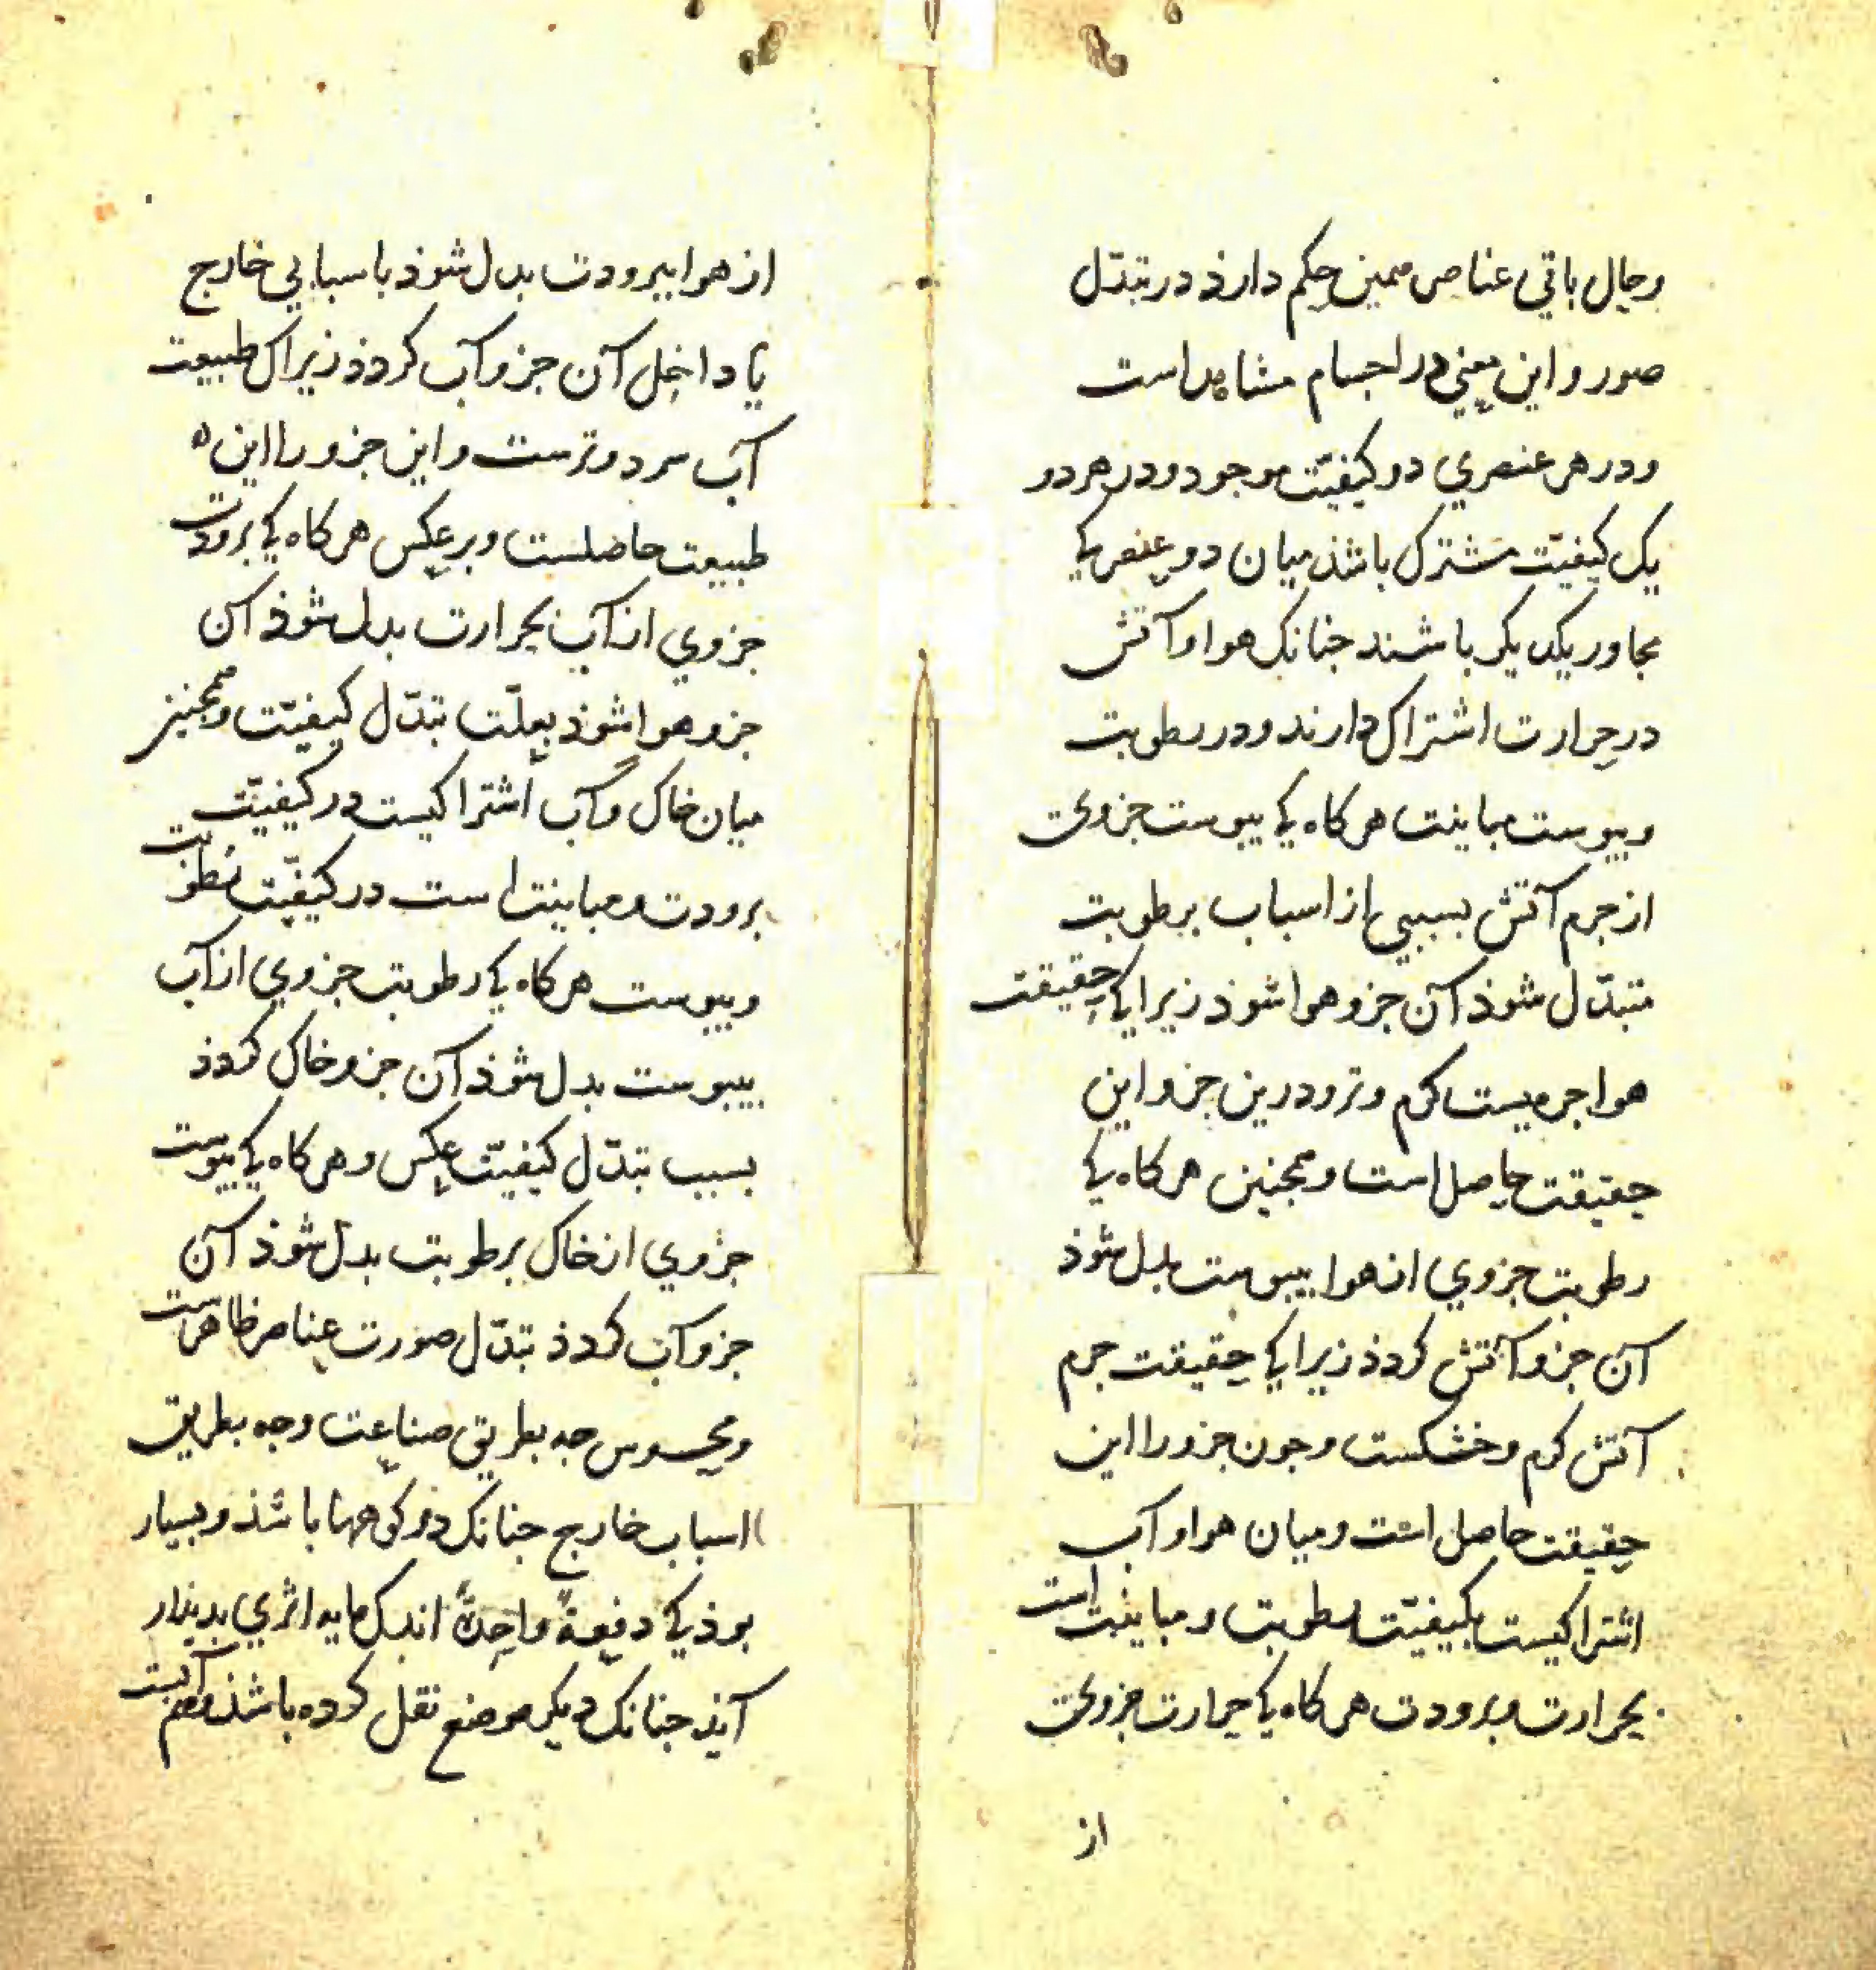 وحال باقی عناصر همین حکم دارذ در تبدّل
صور و این معنی در اجسام مشاهد است
ودر هر عنصری دو کیفیّت موجود ودر هر دو
یک کیفیّت مشترک باشذ میان دو عنصر کی
مجاور یکدیکر باشند جنانک هوا و آتش
در حرارت اشتراک دارند ودر رطوبت
ویبوست مباینت هرکاه کی یبوست جزوی
از جرم آتش بسببی از اسباب برطوبت
متبدّل شوذ آن جزو هوا شوذ زیرا کی حقیقت
هوا جرمیست کرم و تر ودرین جزو این
حقیقت حاصل است وهمجنین هرکاه کی
رطوبت جزوی از هوا بیبوست بدل شوذ
آن جزو آتش کردذ زیرا کی حقیقت جرم
آتش کرم وخشکست وجون جزو را این
حقیقت حاصل است ومیان هوا و آب
اشتراکیست بکیفیّت رطوبت ومباینت است
بحرارت وبرودت هرکاه کی حرارت جزوی
از
از هوا ببرودت بدل شوذ باسبابی خارج
یا داخل آن جزو آب کردذ زیراک طبیعت
آب سرد وترست واین جزو را این
طبیعت حاصلست وبر عکس هرکاه کی برودت
جزوی از آب بحرارت بدل شوذ آن
جزو هوا شوذ بعلّت تبدّل کیفیّت وهمجنین
میان خاک وآب اشتراکیست در کیفیّت
برودت ومباینت است در کیفیّت رطوبت
ویبوست هرکاه کی رطوبت جزوی از آب
بیبوست بدل شوذ آن جزو خاک کردذ
بسبب تبدّل کیفیّت عکس وهرکاه کی یبوست
جزوی از خاک برطوبت بدل شوذ آن
جزو آب کردذ تبدّل صورت عناصر ظاهرست
ومحسوس جه بطریق صناعت وجه بطریق
اسباب خارج جنانک در کوهها باشذ وبسیار
بوذ کی دفعةً واحدةً اندک مایه اثری بدیذار
آیذ جنانک دیکر موضع نقل کرده باشذ